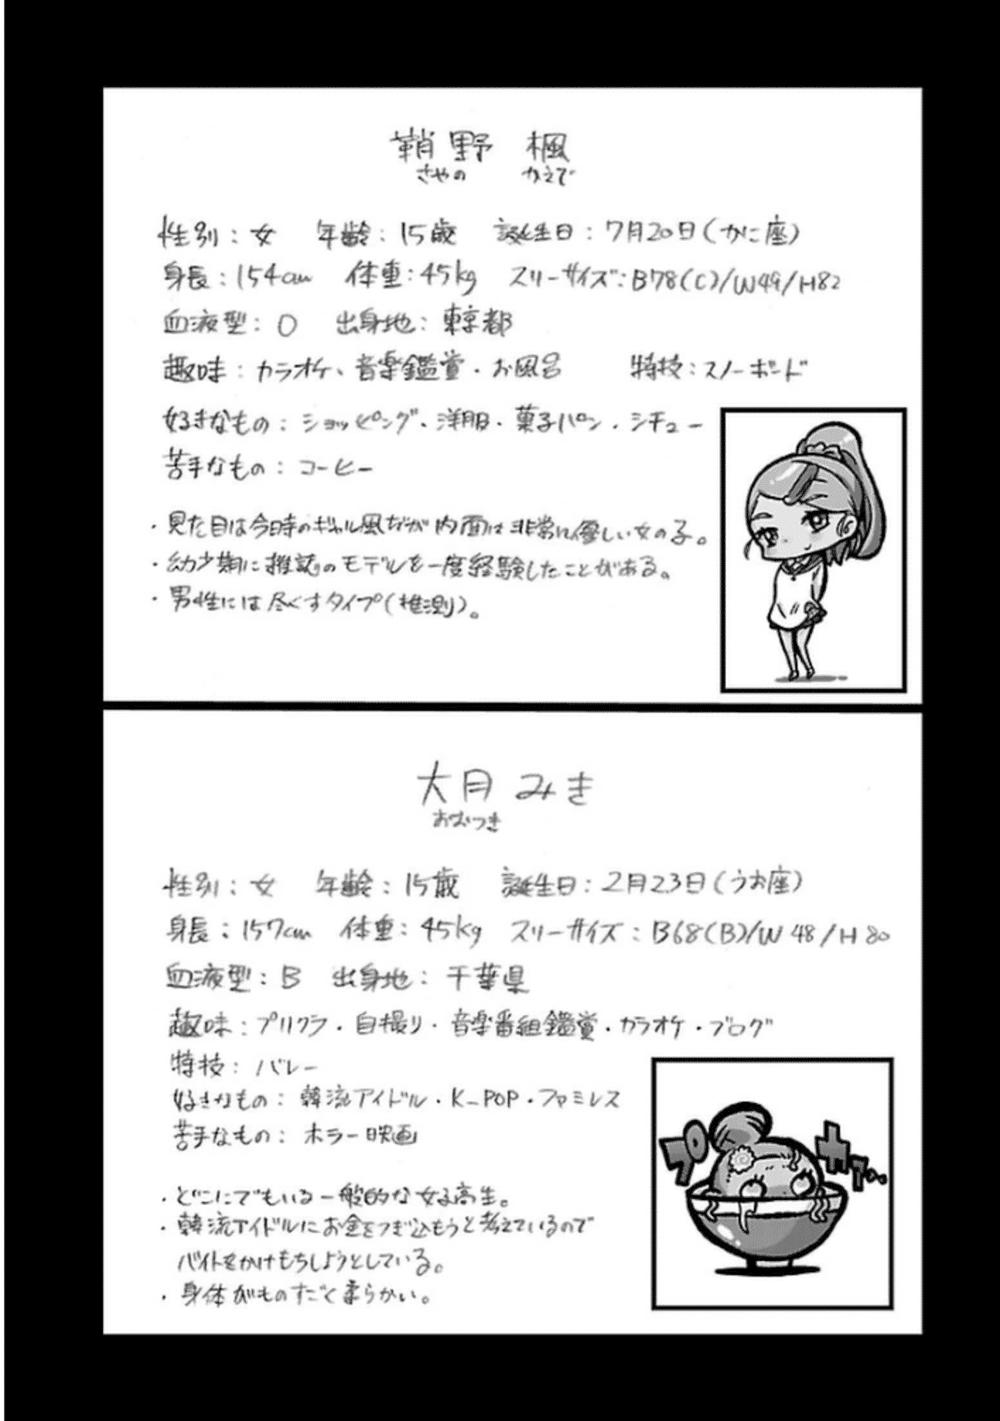 鞘野 楓
さやの かえで
性別：女 年齢：15歳 誕生日：7月20日（かに座）
身長：154cm 体重：45kg スリーサイズ：B78(C)/W49/H82
血液型：O 出身地：東京都
趣味：カラオケ、音楽鑑賞・お風呂 特技：スノーボード
好きなもの：ショッピング・洋服・菓子パン・シチュー
苦手なもの：コーヒー
・見た目は今時のギャル風だが内面は非常に優しい女の子。
・幼少期に雑誌のモデルを一度経験したことがある。
・男性には尽くすタイプ（推測）。
大月 みき
おおつき
性別：女 年齢：15歳 誕生日：2月23日（うお座）
身長：157cm 体重：45kg スリーサイズ：B68(B)/W48/H80
血液型：B 出身地：千葉県
趣味：プリクラ・自撮り・音楽番組鑑賞・カラオケ・ブログ
特技：バレー
好きなもの：韓流アイドル・K-POP・ファミレス
苦手なもの：ホラー映画
プカァ…
・どこにでもいる一般的な女子高生。
・韓流アイドルにお金をつぎ込もうと考えているので
バイトをかけもちしようとしている。
・身体がものすごく柔らかい。